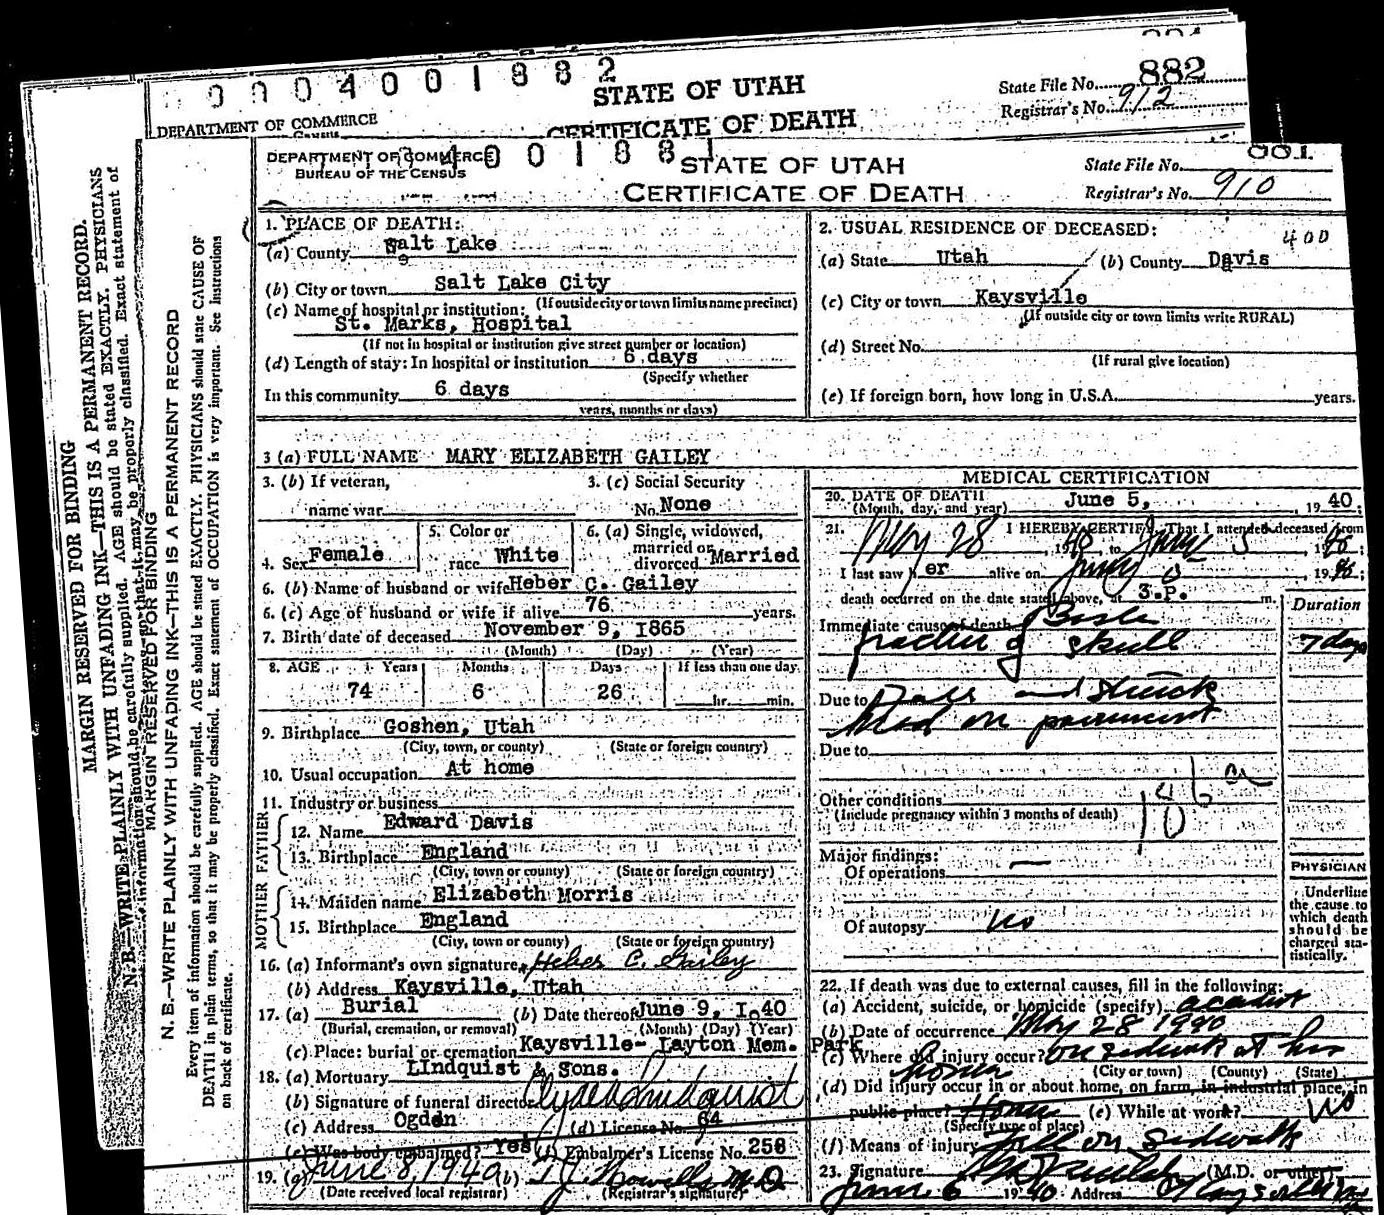 0004001882
STATE OF UTAH
CERTIFICATE OF DEATH
DEPARTMENT OF COMMERCE
Census
State File No. 882
Registrar's No. 912
MARGIN RESERVED FOR BINDING
N. B.—WRITE PLAINLY WITH UNFADING INK—THIS IS A PERMANENT RECORD.
information should be carefully supplied. AGE should be stated EXACTLY. PHYSICIANS
so that it may be properly classified. Exact statement of
MARGIN RESERVED FOR BINDING
N. B.—WRITE PLAINLY WITH UNFADING INK—THIS IS A PERMANENT RECORD
Every item of information should be carefully supplied. AGE should be stated EXACTLY. PHYSICIANS should state CAUSE OF
DEATH in plain terms, so that it may be properly classified. Exact statement of OCCUPATION is very important. See Instructions
on back of certificate.
DEPARTMENT OF COMMERCE
BUREAU OF THE CENSUS
4001881
STATE OF UTAH
CERTIFICATE OF DEATH
State File No. 881
Registrar's No. 910
1. PLACE OF DEATH:
(a) County Salt Lake
(b) City or town Salt Lake City
(If outside city or town limits name precinct)
(c) Name of hospital or institution:
St. Marks, Hospital
(If not in hospital or institution give street number or location)
(d) Length of stay: In hospital or institution 6 days
(Specify whether
In this community 6 days
years, months or days)
2. USUAL RESIDENCE OF DECEASED:
400
(a) State Utah (b) County Davis
(c) City or town Kaysville
(If outside city or town limits write RURAL)
(d) Street No.
(If rural give location)
(e) If foreign born, how long in U.S.A. years.
3 (a) FULL NAME MARY ELIZABETH GAILEY
3. (b) If veteran, 3. (c) Social Security
name war No. None
4. Sex Female 5. Color or race White 6. (a) Single, widowed, married or divorced Married
6. (b) Name of husband or wife Heber C. Gailey
6. (c) Age of husband or wife if alive 76 years.
7. Birth date of deceased November 9, 1865
(Month) (Day) (Year)
8. AGE Years Months Days If less than one day
74 6 26 hr. min.
9. Birthplace Goshen, Utah
(City, town, or county) (State or foreign country)
10. Usual occupation At home
11. Industry or business
FATHER
12. Name Edward Davis
13. Birthplace England
(City, town or county) (State or foreign country)
MOTHER
14. Maiden name Elizabeth Morris
15. Birthplace England
(City, town or county) (State or foreign country)
16. (a) Informant's own signature Heber C. Gailey
(b) Address Kaysville, Utah
17. (a) Burial (b) Date thereof June 9, 1940
(Burial, cremation, or removal) (Month) (Day) (Year)
(c) Place: burial or cremation Kaysville- Layton Mem. Park
18. (a) Mortuary LIndquist & Sons.
(b) Signature of funeral director Clyde Lindquist
(c) Address Ogden (d) License No. 64
(e) Was body embalmed? Yes (f) Embalmer's License No. 256
19. (a) June 8, 1940 (b) T. J. Howells M.D.
(Date received local registrar) (Registrar's signature)
MEDICAL CERTIFICATION
20. DATE OF DEATH June 5, 1940
(Month, day, and year)
21. I HEREBY CERTIFY, That I attended deceased from
May 28, 1940 to June 5 1940;
I last saw her alive on June 5 1940;
death occurred on the date stated above, at 3.P. m.
Duration
Immediate cause of death Basle
fracture of skull 7 days
Due to Fall and struck
head on pavement
Due to
186a
10
Other conditions
(Include pregnancy within 3 months of death)
Major findings:
Of operations —
Of autopsy No
PHYSICIAN
Underline
the cause to
which death
should be
charged sta-
tistically.
22. If death was due to external causes, fill in the following:
(a) Accident, suicide, or homicide (specify) accident
(b) Date of occurrence May 28 1940
(c) Where did injury occur? on sidewalk at her
home (City or town) (County) (State)
(d) Did injury occur in or about home, on farm, in industrial place, in
public place? Home (e) While at work? No
(Specify type of place)
(f) Means of injury Fell on sidewalk
23. Signature (M.D. or other)
June 6 1940 Address Kaysville